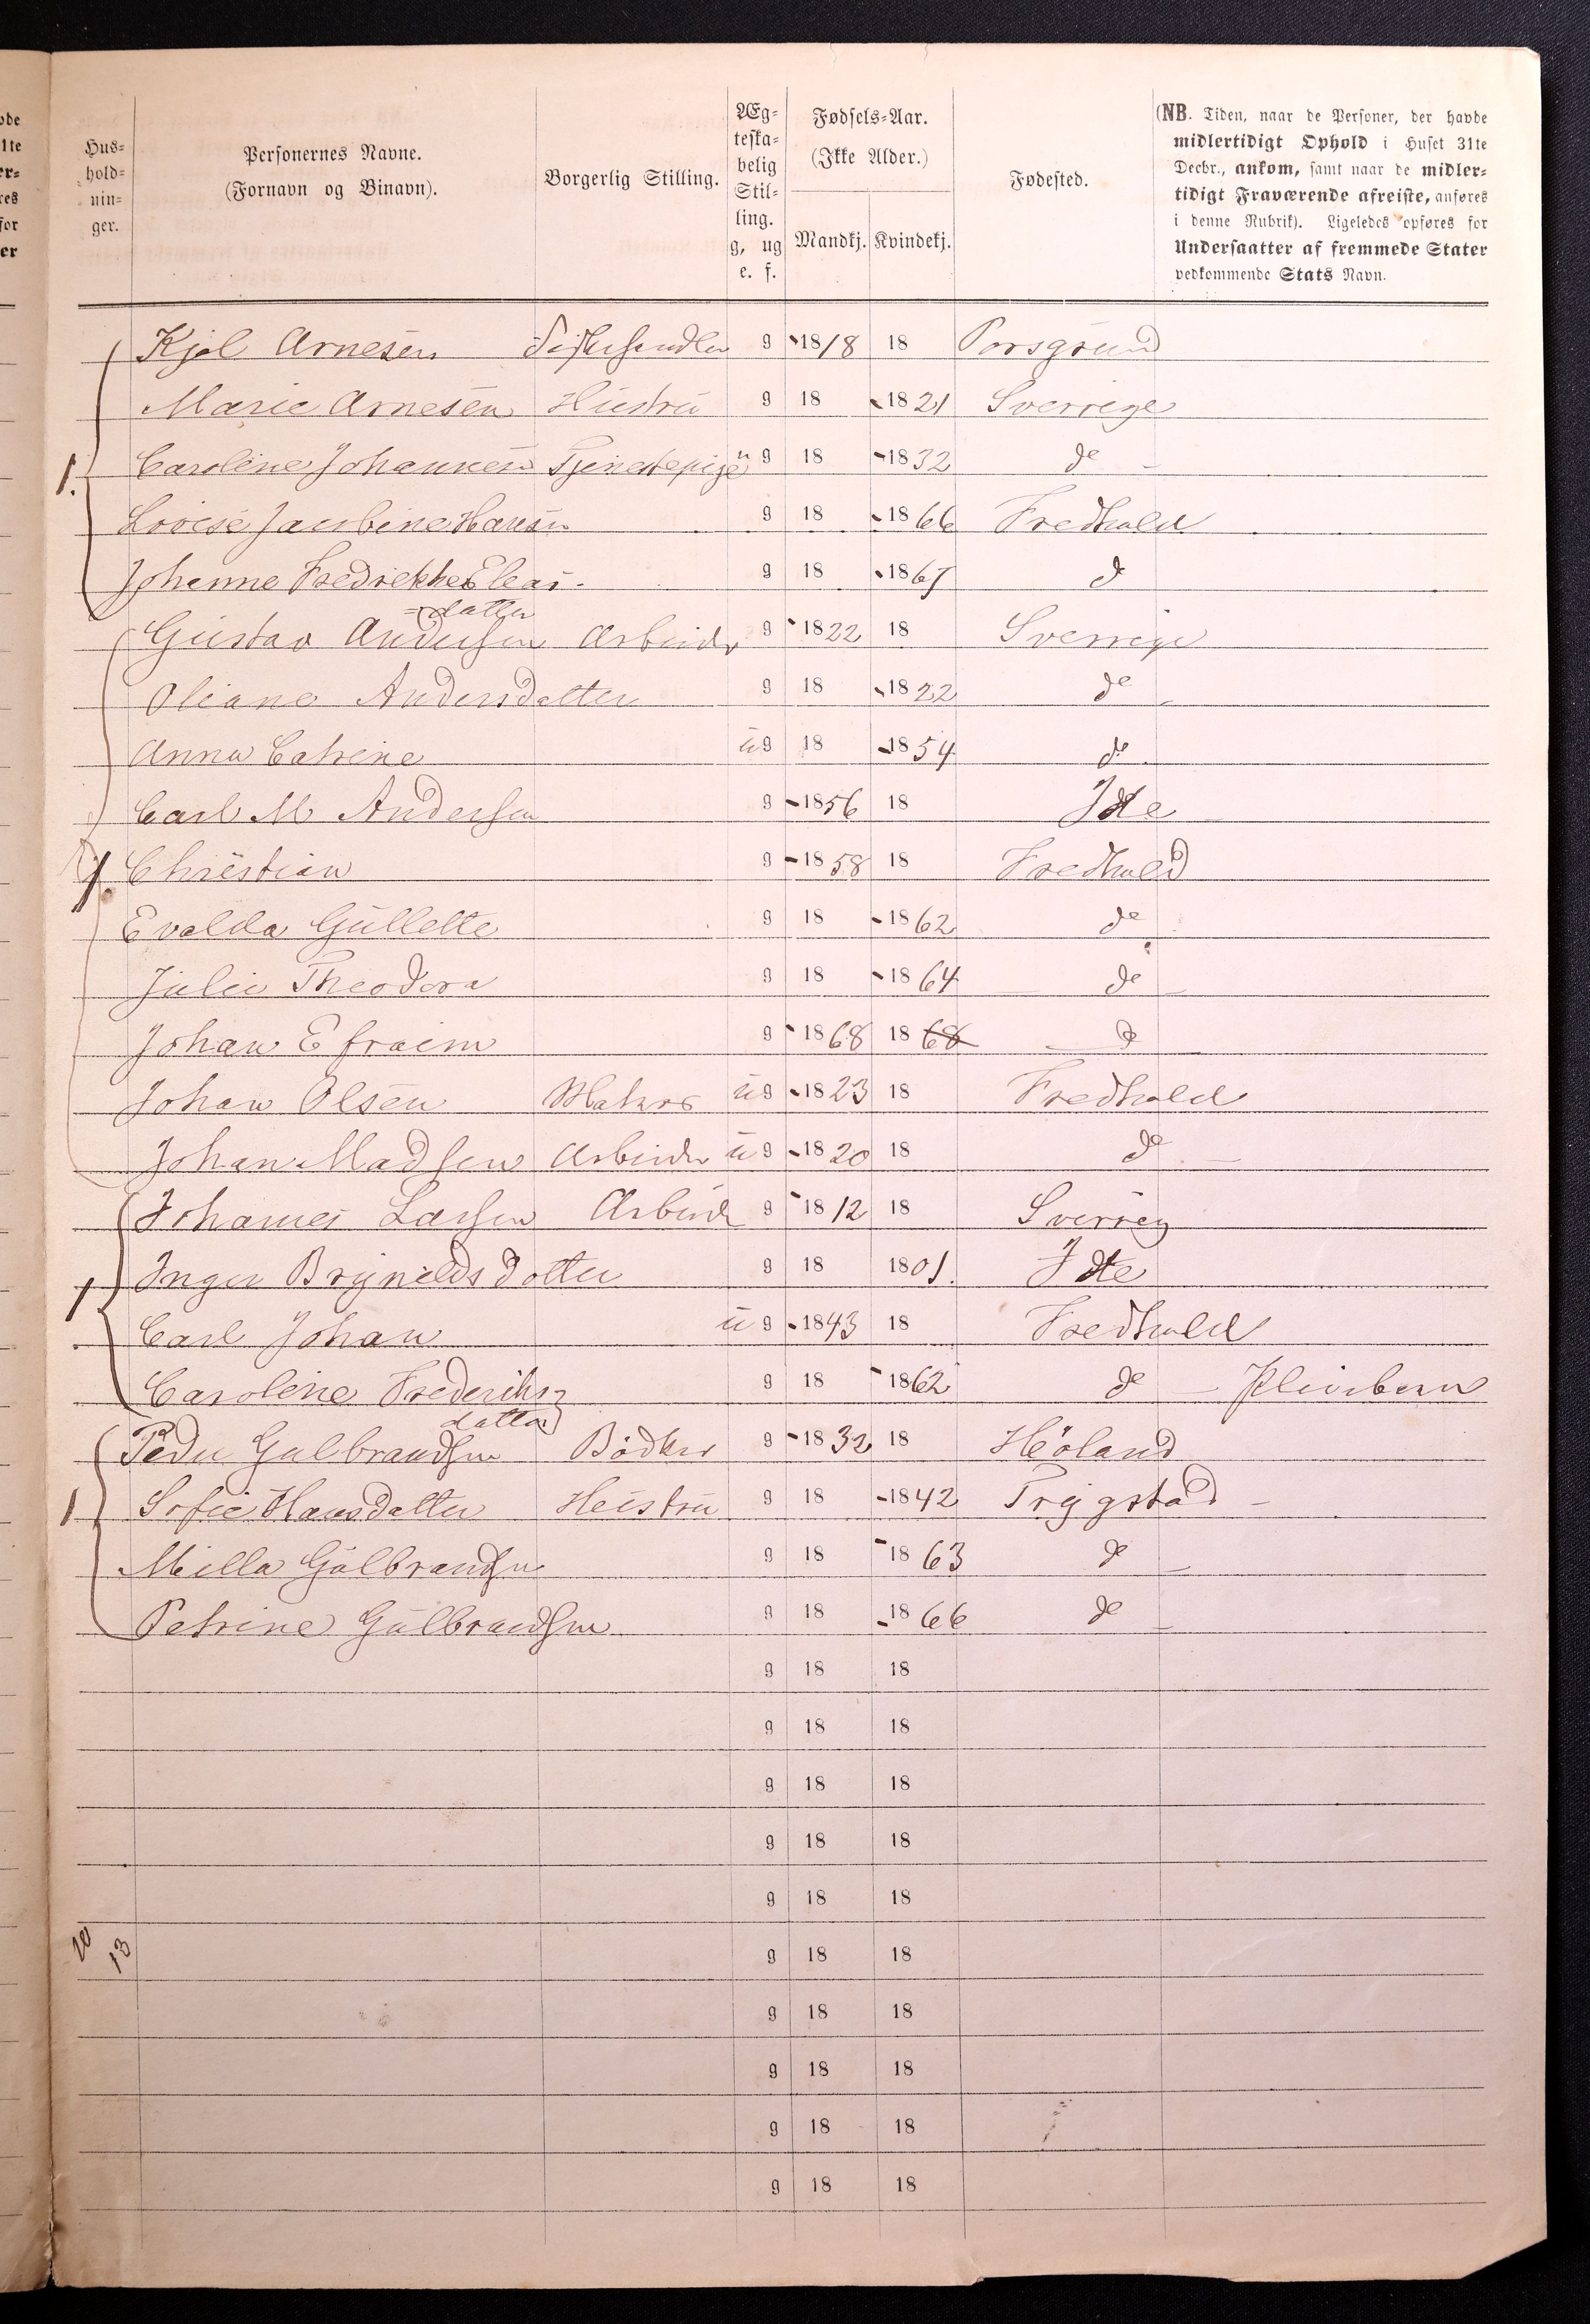 Hus-
hold-
nin-
ger.
Personernes Navne.
(Fornavn og Binavn).
Borgerlig Stilling.
Æg-
teska-
belig
Stil-
ling.
g, ug
e. f.
Fødsels-Aar.
(Ikke Alder.)
Mandkj. Kvindekj.
Fødested.
(NB. Tiden, naar de Personer, der havde
midlertidigt Ophold i Huset 31te
Decbr., ankom, samt naar de midler-
tidigt Fraværende afreiste, anføres
i denne Rubrik). Ligeledes opføres for
Undersaatter af fremmede Stater
vedkommende Stats Navn.
Kjøl Arnesen g 1818 18 Porsgrund
Marie Arnesen Hustru g 18 1821 Sverrige
1. Caroline Johannesen Tjenestepige u g 18 1832 do
Lovise Jacobine Hansen g 18 1866 Fredhald
Johanne Fredrekke Elea- g 18 1865 d
datter
Gustav Andersen Arbeider g 1822 18 Sverrige
Oliane Andersdatter g 18 1822 do
Anna Catrine ug 18 1854 do
Carl M Andersen g 1856 18 Idde
1. Christian g 1858 18 Fredhald
Evalda Gullette g 18 1862 do
Julie Theodora g 18 1864 do
Johan Efraim g 1868 18 68 d
Johan Olsen Matros ug 1823 18 Fredhald
Johan Madsen Arbeider ug 1820 18 do
Johannes Larsen Arbeider g 1812 18 Sverrig
1 Inger Brynildsdatter g 18 1801. Idde
Carl Johan ug 1843 18 Fredhald
Caroline Frederiks- g 18 1862 do Pleiebarn
datter
Peder Gulbrandsen Bødker g 1832 18 Höland
1 Sofie Hansdatter Hustru g 18 1842 Trygstad
Milla Gulbrandsen g 18 1863 do
Petrine Gulbrandsen g 18 1866 do
g 18 18
g 18 18
g 18 18
g 18 18
g 18 18
10 13 g 18 18
g 18 18
g 18 18
g 18 18
g 18 18